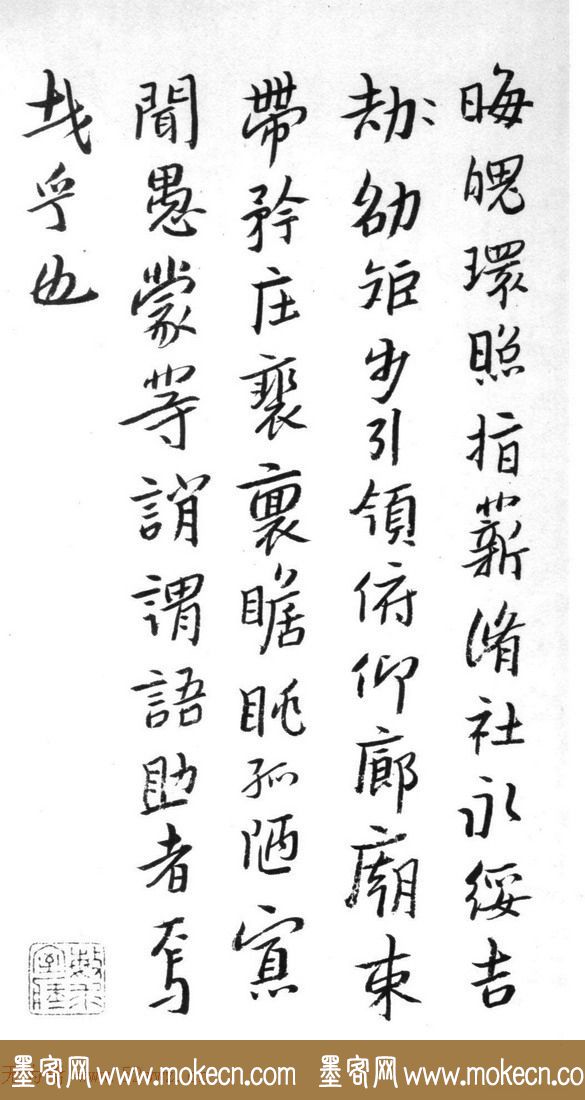 晦魄環照指薪脩社永綏吉
劫劭矩步引領俯仰廊廟束
帶矜庄裵褱瞻眺孤陋寡
聞愚蒙等誚謂語助者焉
哉乎也
墨客网 www.mokecn.com 墨客网 www.mokecn.com